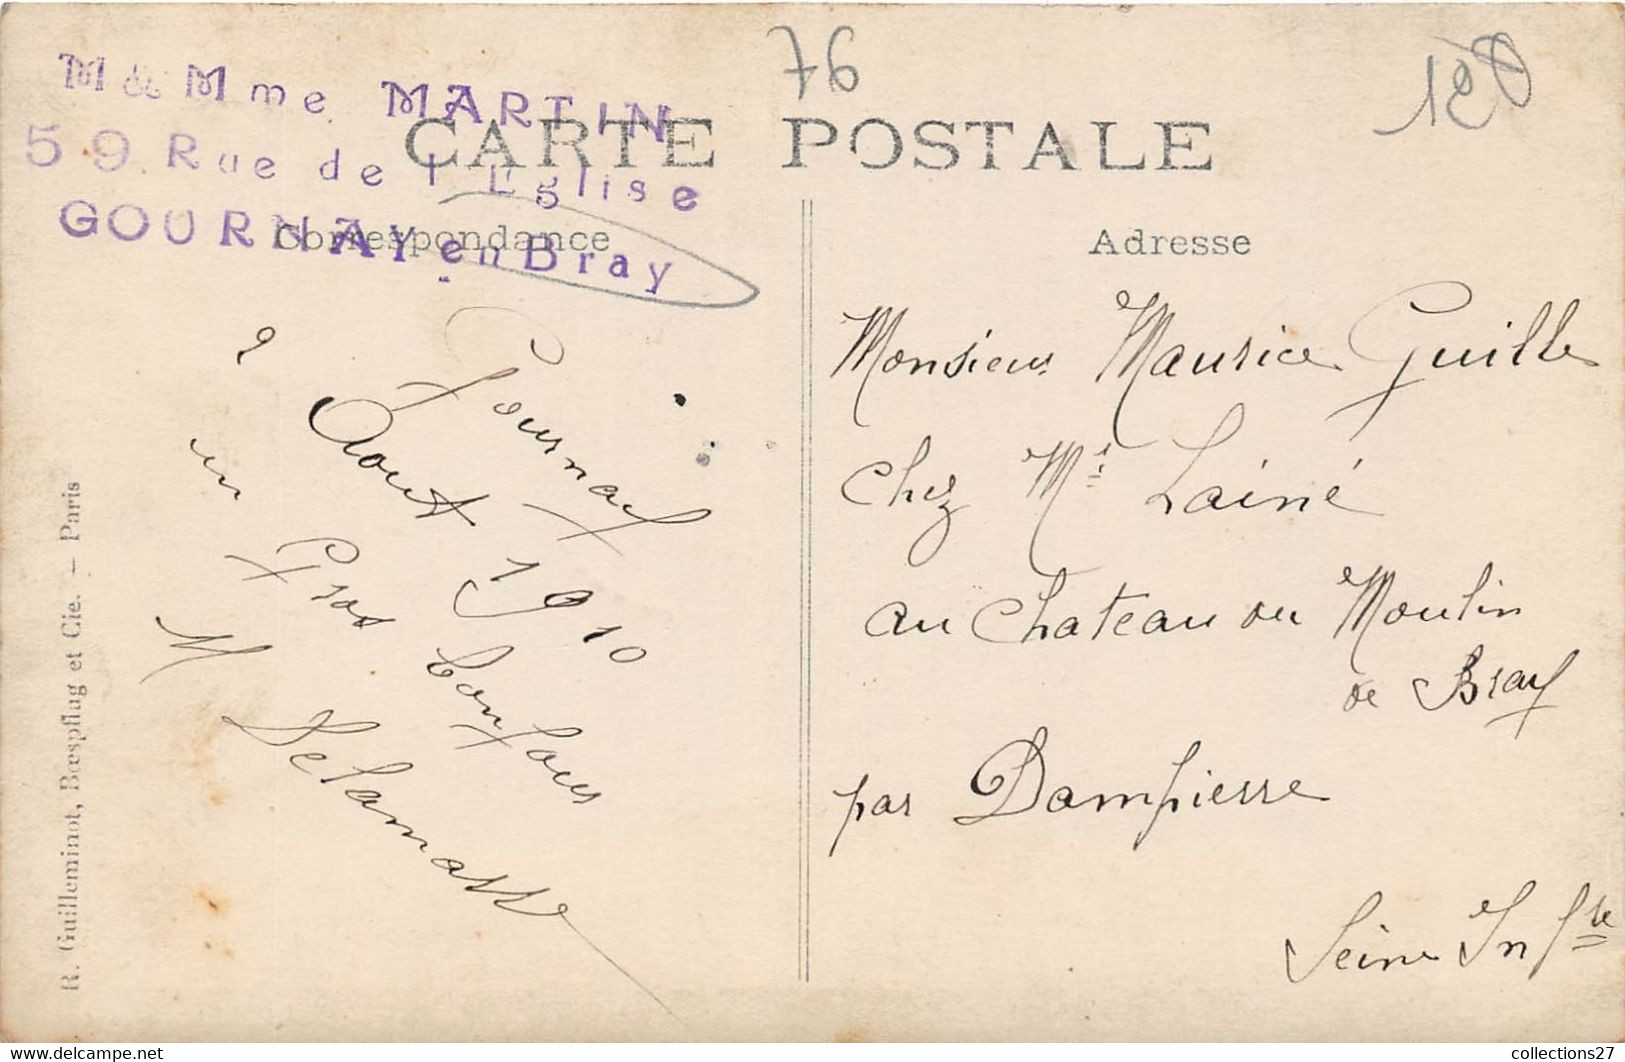 M & Mme MARTIN
59 Rue de l'Eglise
GOURNAY en Bray
76
CARTE POSTALE
Correspondance
Adresse
Gournay
2 Aout 1910
un Gros bonjour
M Delamasse
Monsieur Maurice Guille
Chez Mr Lainé
au Chateau du Moulin
de Bray
par Dampierre
Seine Infre
R. Guilleminot, Bœspflug et Cie. – Paris
collections27